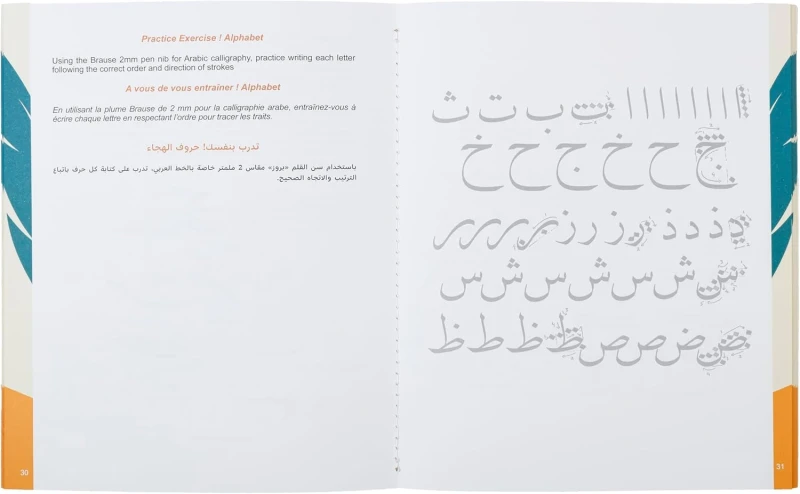 Practice Exercise ! Alphabet
Using the Brause 2mm pen nib for Arabic calligraphy, practice writing each letter
following the correct order and direction of strokes
A vous de vous entraîner ! Alphabet
En utilisant la plume Brause de 2 mm pour la calligraphie arabe, entraînez-vous à
écrire chaque lettre en respectant l'ordre pour tracer les traits.
تدرب بنفسك! حروف الهجاء
باستخدام سن القلم «بروز» مقاس 2 ملمتر خاصة بالخط العربي، تدرب على كتابة كل حرف باتباع
الترتيب والاتجاه الصحيح.
30
ا ا ا ا ا ا ا ا ب ب ت ث
ج ح خ ج ح خ
د ذ د ذ ر ز ر ز ر ر ر ر
س ش س ش س ش س
ض ض ص ص ظ ظ ط ظ
31